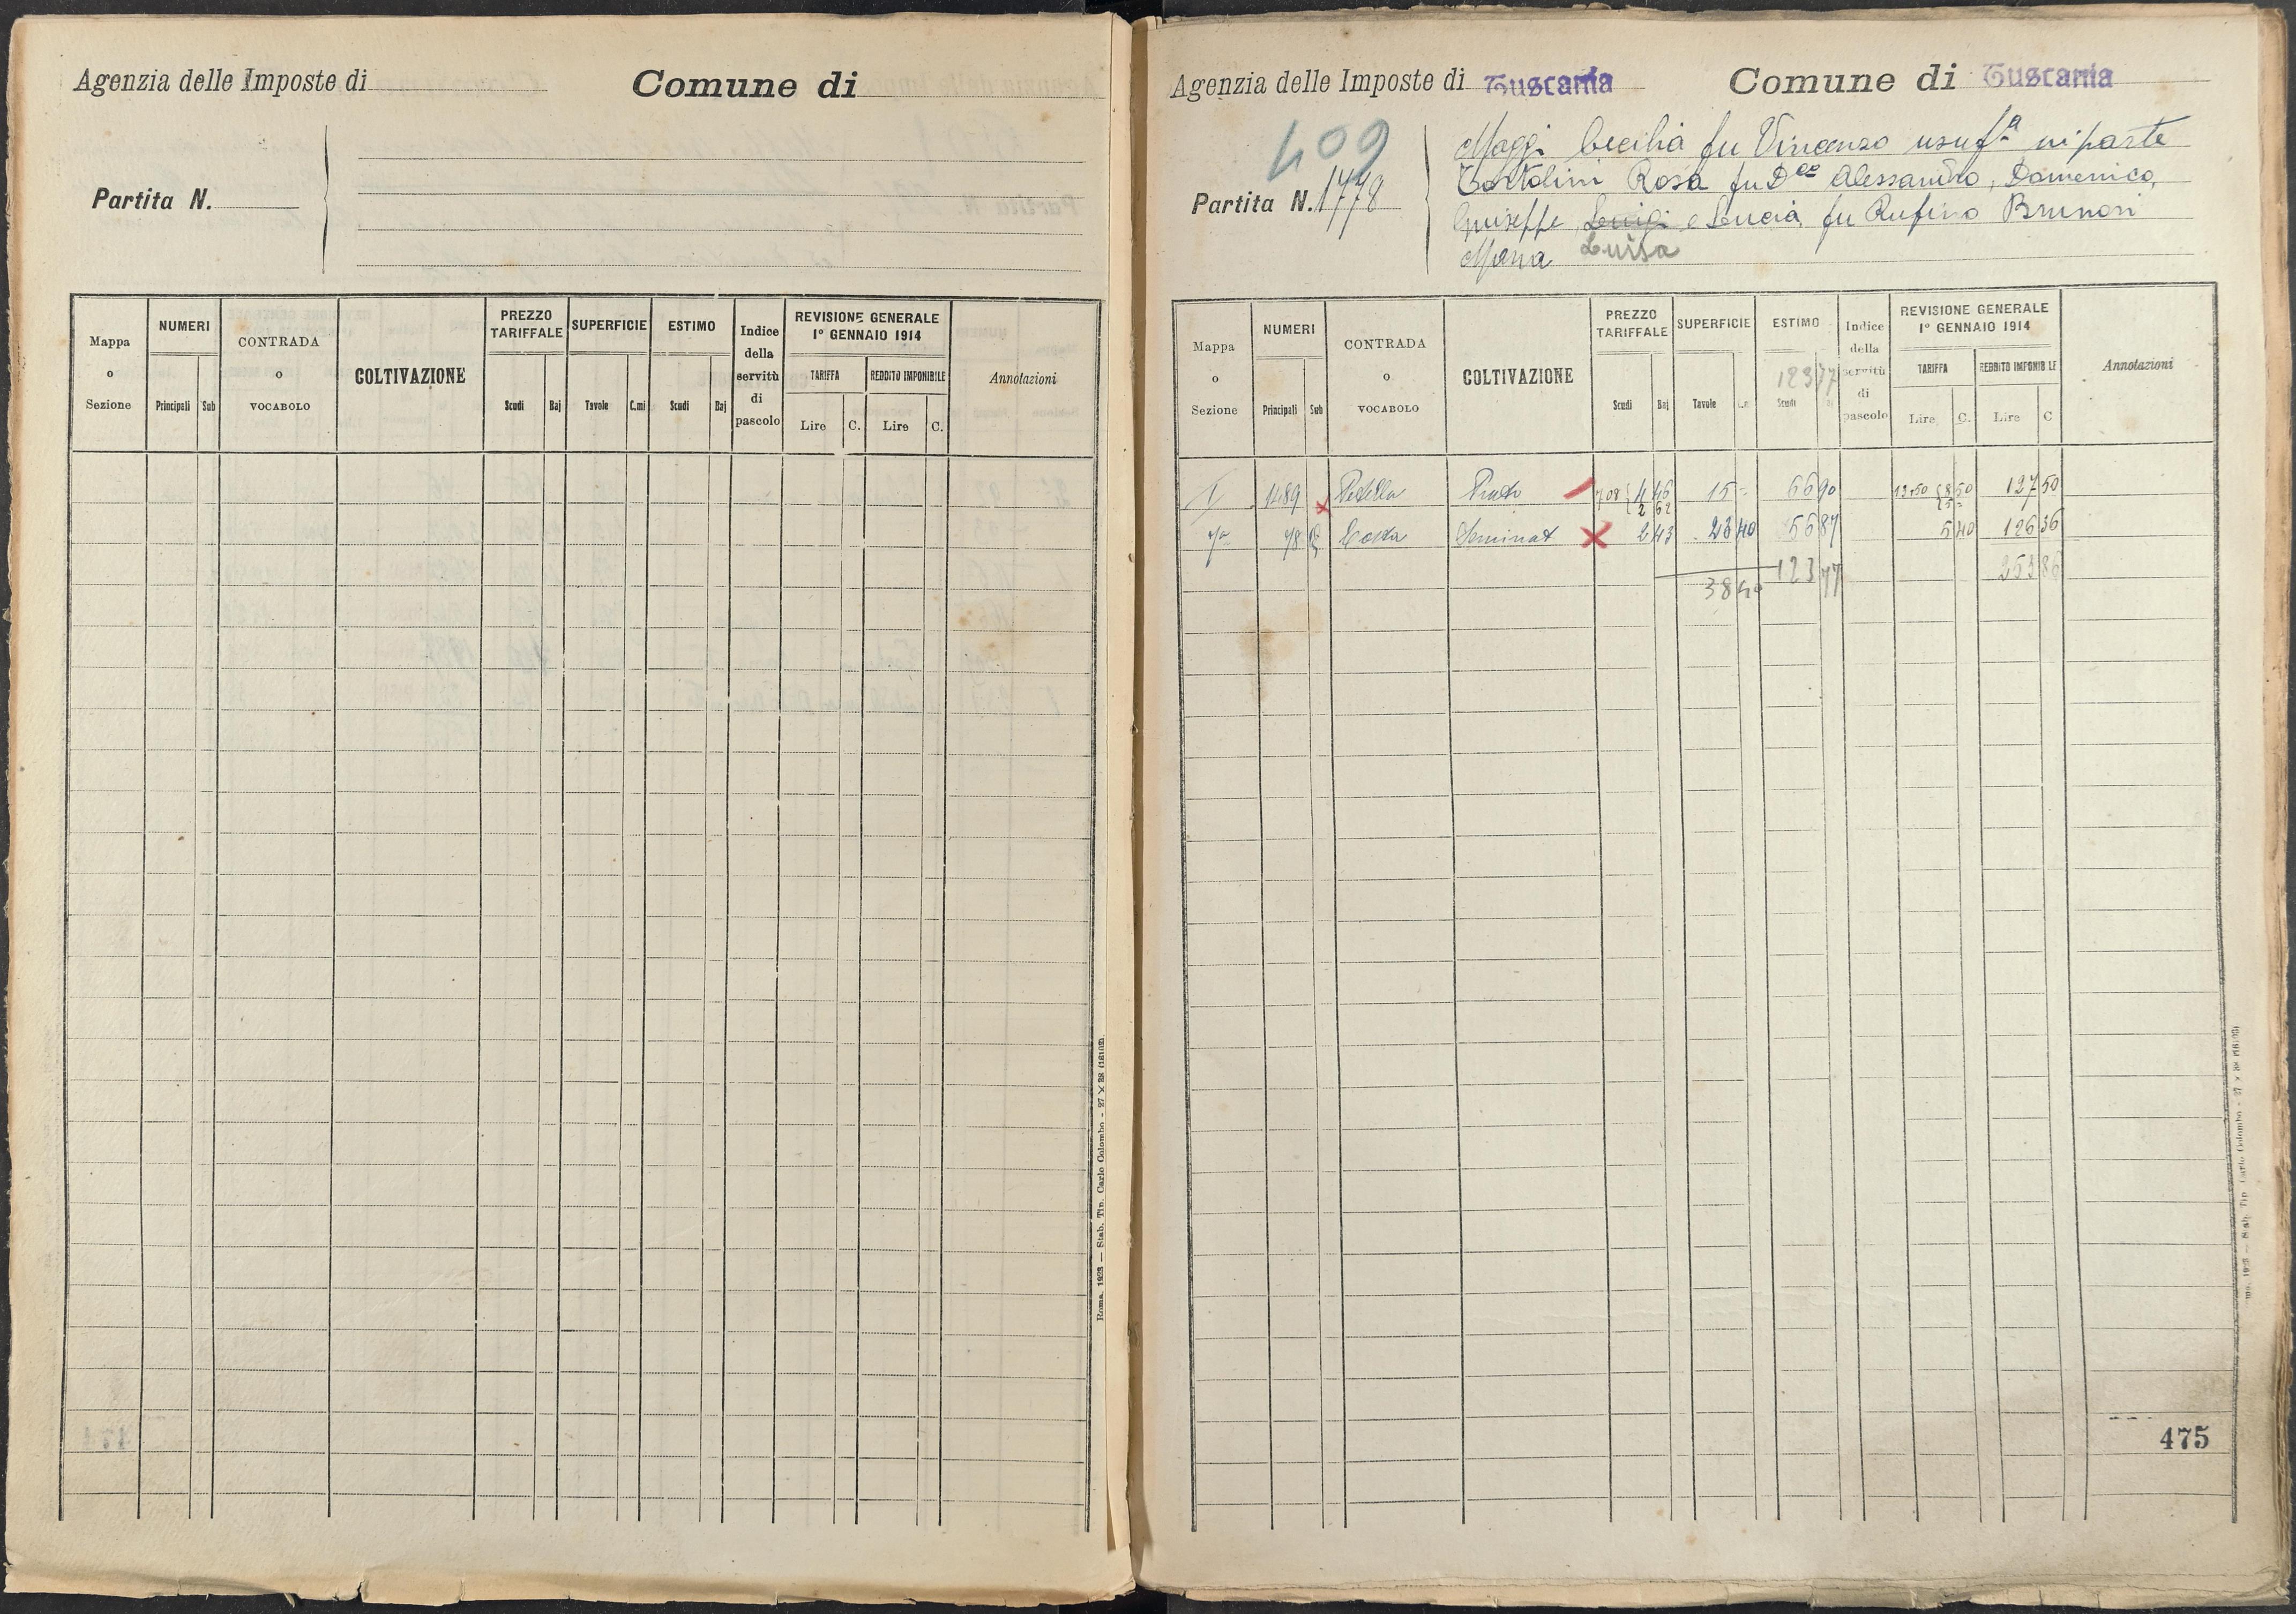 Agenzia delle Imposte di
Comune di
Partita N.
Mappa o Sezione
NUMERI
Principali
Sub
CONTRADA o VOCABOLO
COLTIVAZIONE
PREZZO TARIFFALE
Scudi
Baj
SUPERFICIE
Tavole
C.mi
ESTIMO
Scudi
Baj
Indice della servitù di pascolo
REVISIONE GENERALE
1° GENNAIO 1914
TARIFFA
Lire
C.
REDDITO IMPONIBILE
Lire
C.
Annotazioni
Roma, 1923 — Stab. Tip. Carlo Colombo - 27 × 38 (16102)
Agenzia delle Imposte di Tuscania
Comune di Tuscania
409
Partita N. 1778
Maggi Cecilia fu Vincenzo usuf.a in parte
Bartolini Rosa fu D.co Alessandro, Domenico,
Giuseppe Luigi e Lucia fu Rufino Brunori
Maria Luisa
Mappa o Sezione
NUMERI
Principali
Sub
CONTRADA o VOCABOLO
COLTIVAZIONE
PREZZO TARIFFALE
Scudi
Baj
SUPERFICIE
Tavole
C.mi
ESTIMO
123 77
Scudi
Indice della servitù di pascolo
REVISIONE GENERALE
1° GENNAIO 1914
TARIFFA
Lire
C.
REDDITO IMPONIBILE
Lire
C
Annotazioni
I 1489 Prato 7 08 4 46 15 - 66 90 13 50 8 50 127 50
2 62
78 Costa Seminat 2 43 23 40 56 87 5 40 126 36
38 40 123 77 253 86
475